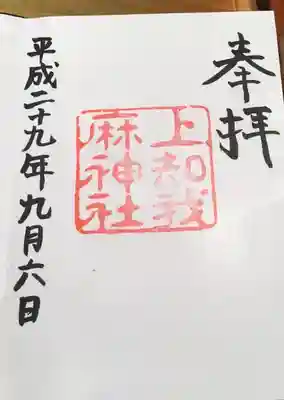 奉拝
上知我
麻神社
平成二十九年九月六日